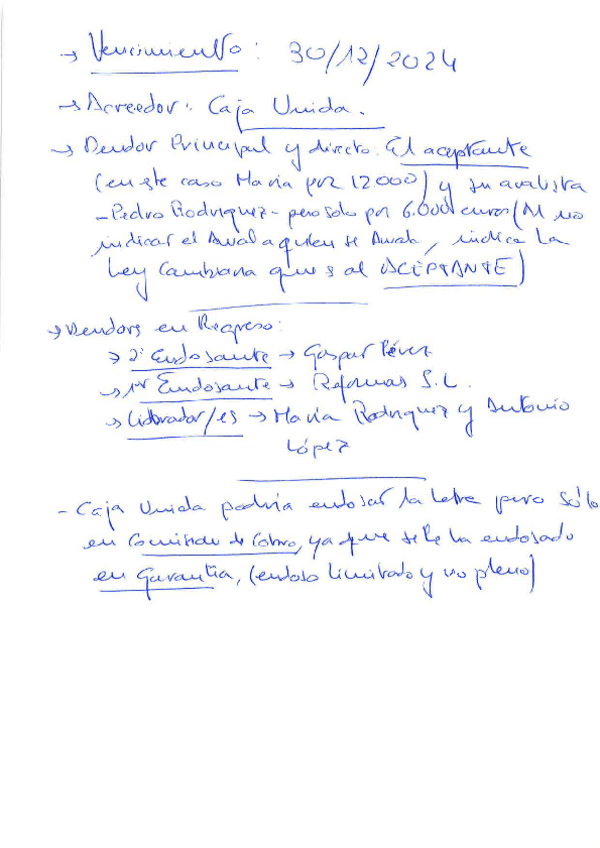 → Vencimiento: 30/12/2024
→ Acreedor: Caja Unida.
→ Deudor Principal y directo. El aceptante
(en este caso María por 12.000) y su avalista
- Pedro Rodríguez - pero solo por 6.000 euros (Al no
indicar el Aval a quien se Avala, indica la
Ley Cambiaria que es al ACEPTANTE)
→ Deudores en Regreso:
→ 2º Endosante → Gaspar Pérez
→ 1er Endosante → Reformas S.L.
→ Librador/es → María Rodríguez y Antonio
López
- Caja Unida podría endosar la letra pero sólo
en Comisión de Cobro, ya que se le ha endosado
en Garantía, (endoso limitado y no pleno)